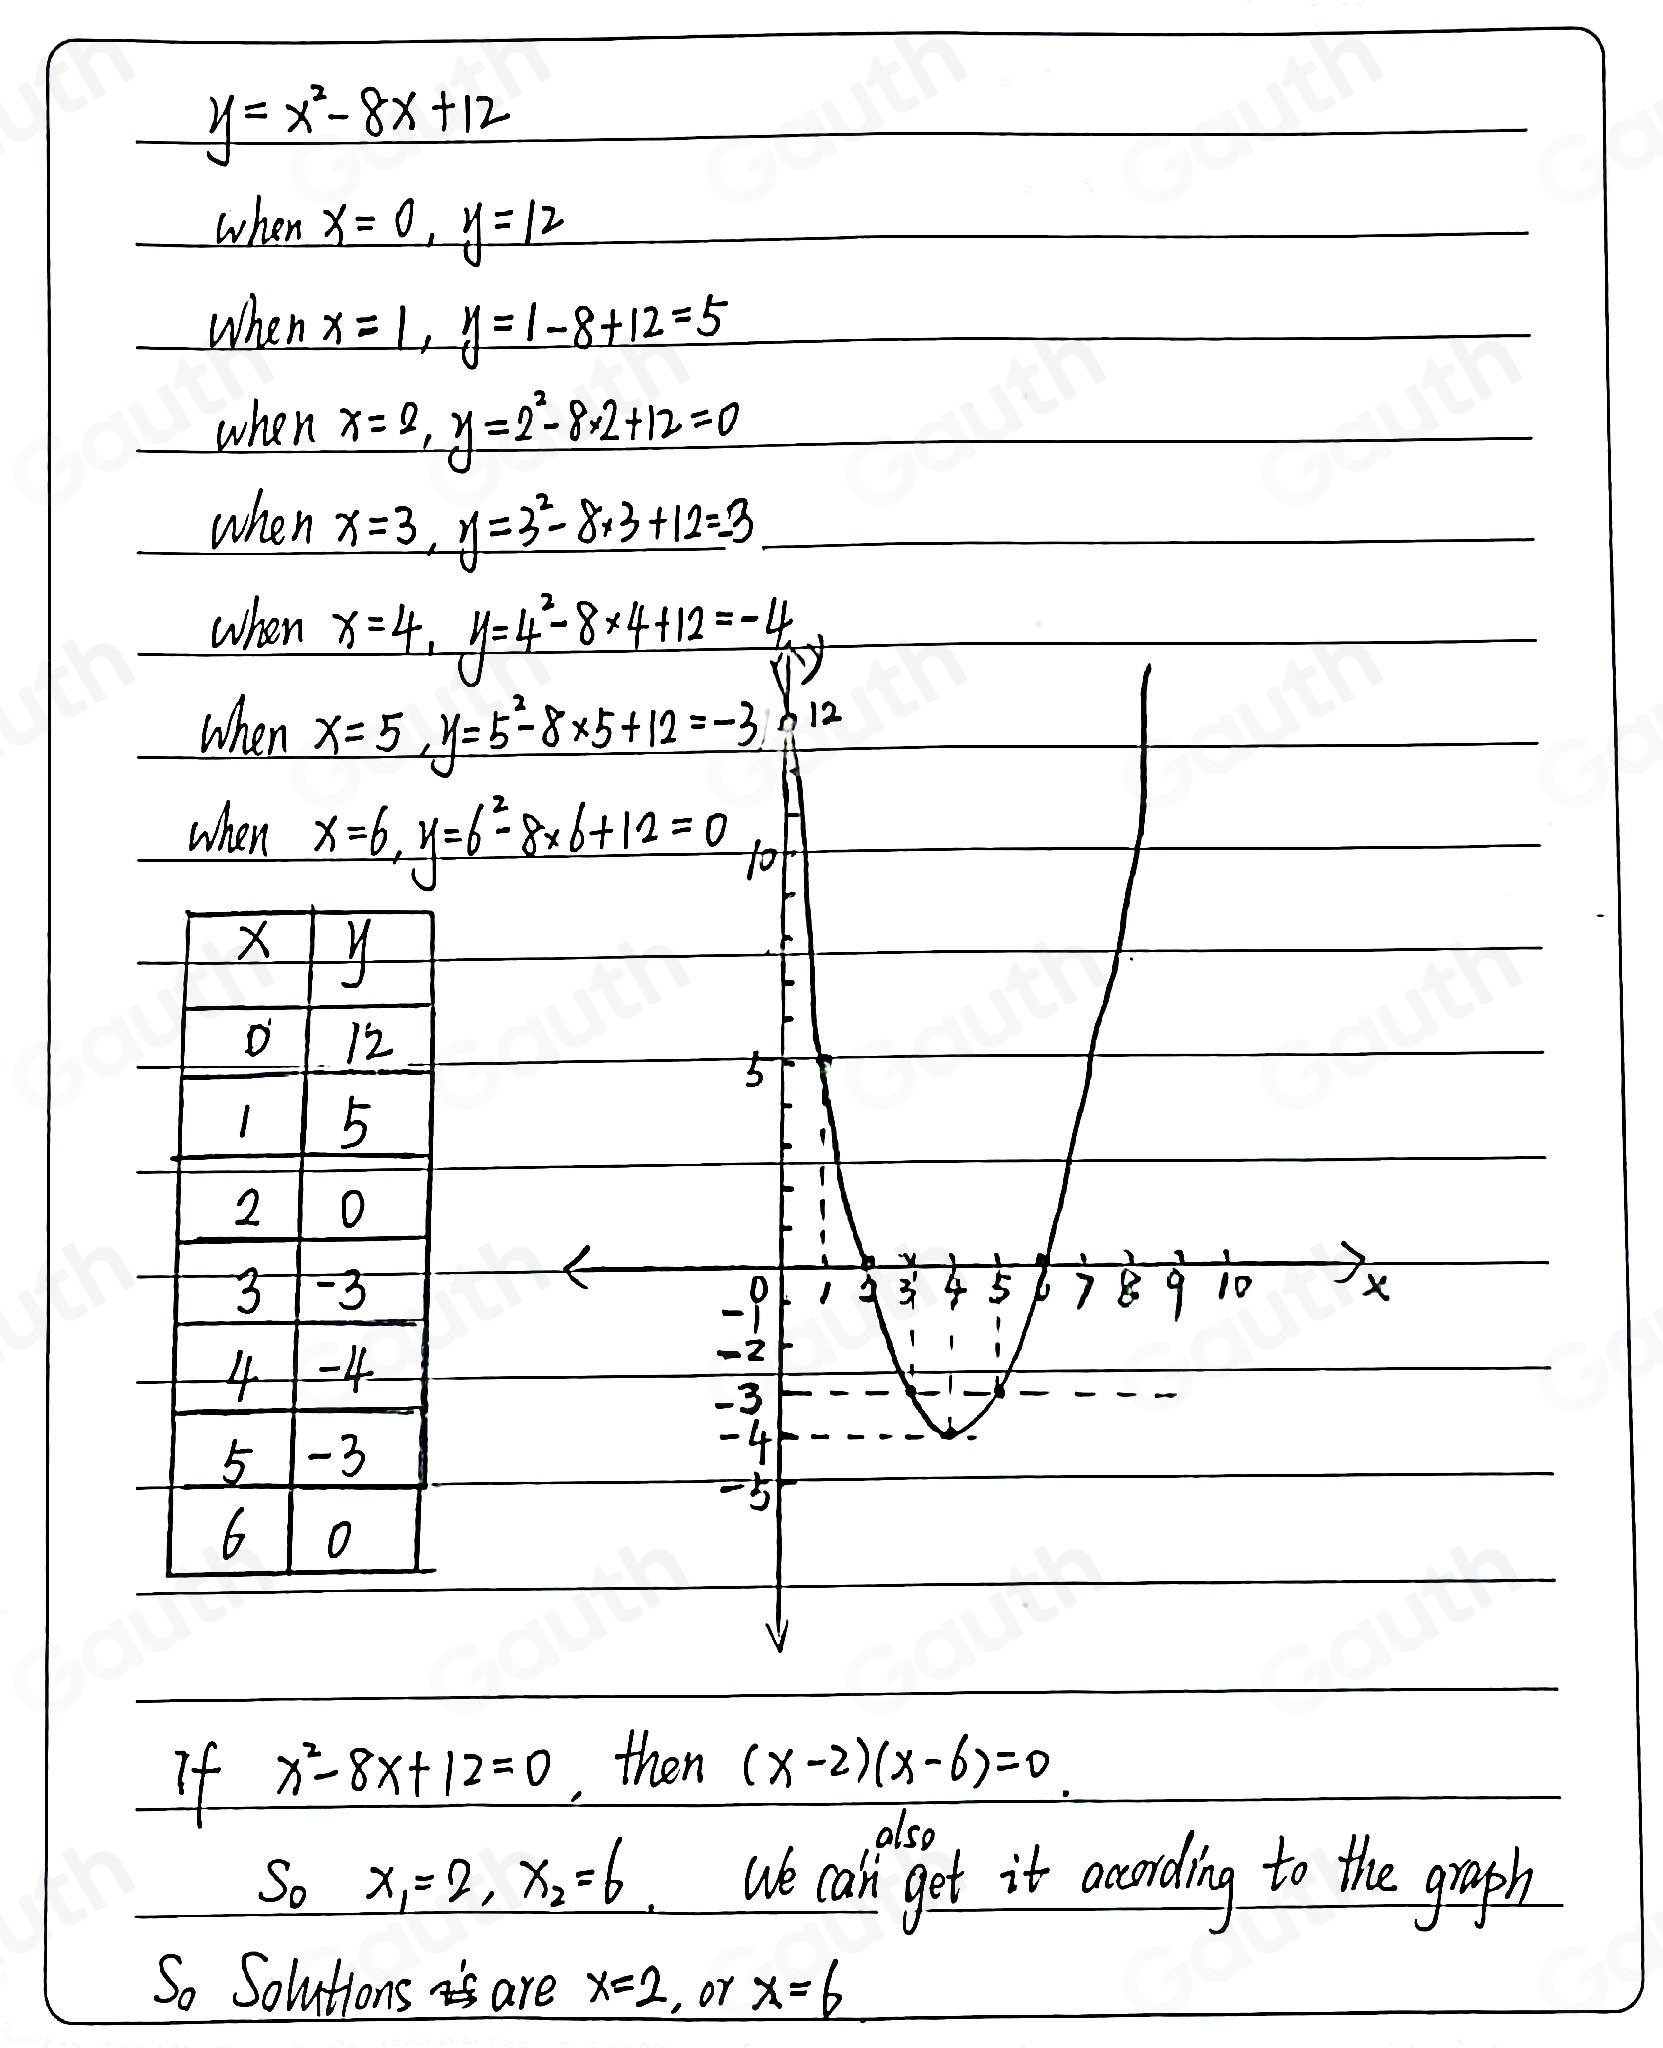 y = x² - 8x + 12
when x = 0, y = 12
when x = 1, y = 1 - 8 + 12 = 5
when x = 2, y = 2² - 8×2 + 12 = 0
when x = 3, y = 3² - 8×3 + 12 = -3
when x = 4, y = 4² - 8×4 + 12 = -4
when x = 5, y = 5² - 8×5 + 12 = -3
when x = 6, y = 6² - 8×6 + 12 = 0
x y
0 12
1 5
2 0
3 -3
4 -4
5 -3
6 0
y
12
10
5
0 1 2 3 4 5 6 7 8 9 10 x
-1
-2
-3
-4
-5
If x² - 8x + 12 = 0, then (x - 2)(x - 6) = 0.
So x₁ = 2, x₂ = 6. We can also get it according to the graph
So Solutions are x = 2, or x = 6
Gauth